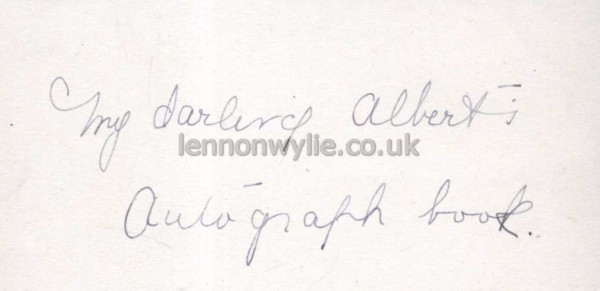 My darling Albert's
lennonwylie.co.uk
Autograph book.